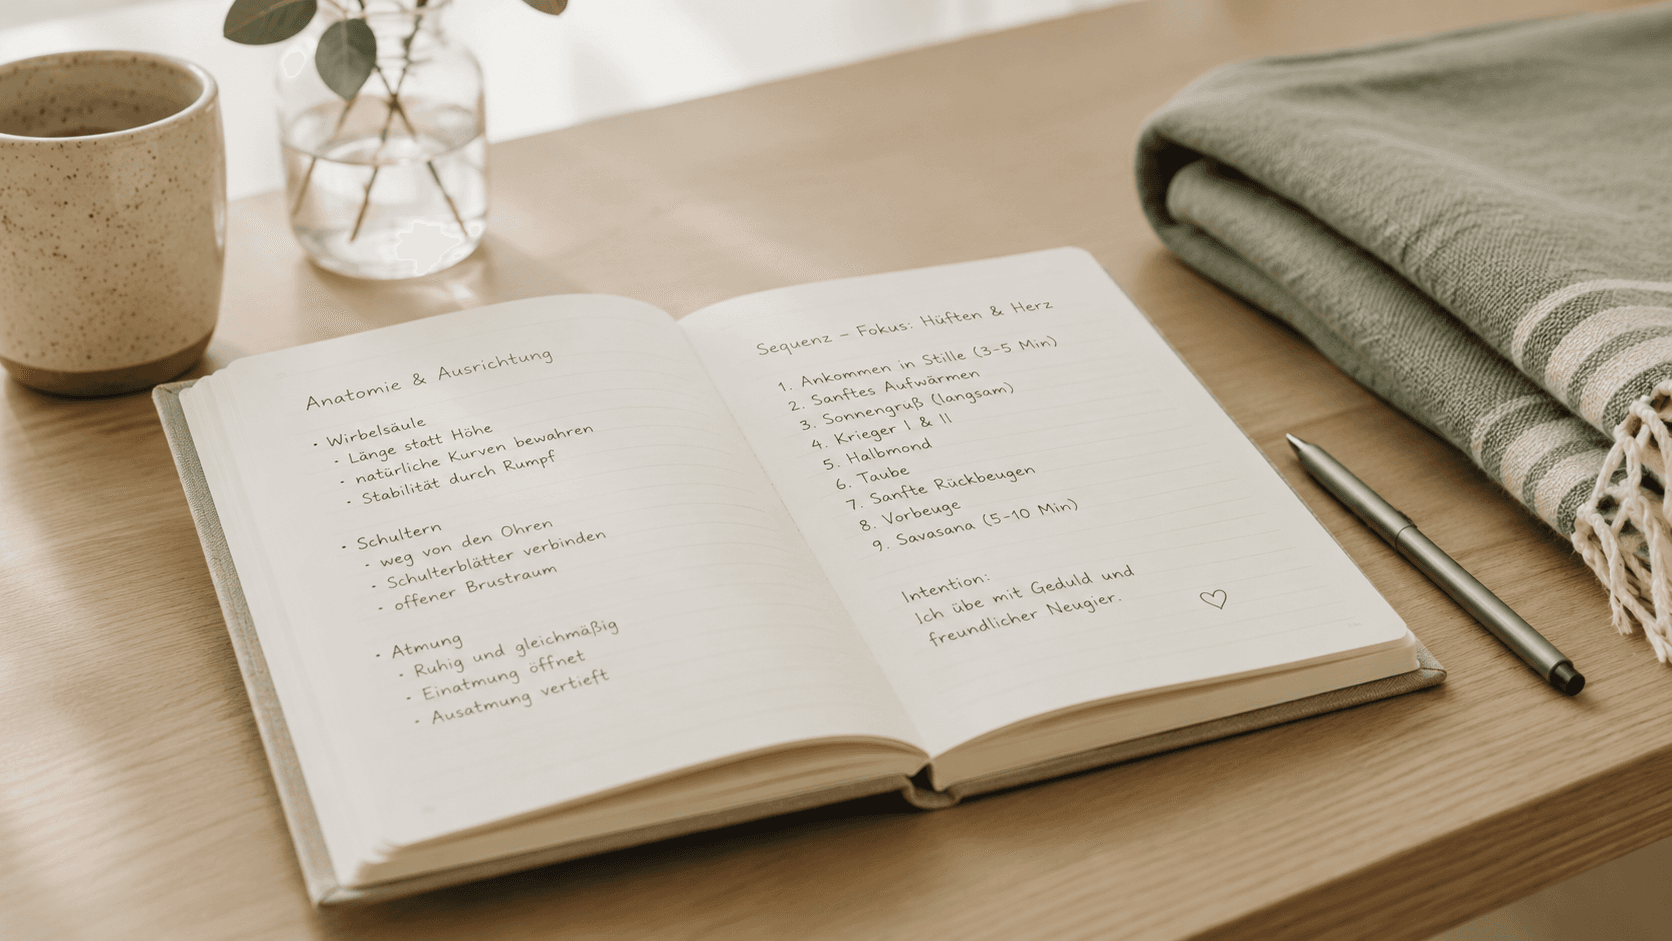 Anatomie & Ausrichtung
• Wirbelsäule
- Länge statt Höhe
- natürliche Kurven bewahren
- Stabilität durch Rumpf
• Schultern
- weg von den Ohren
- Schulterblätter verbinden
- offener Brustraum
• Atmung
- Ruhig und gleichmäßig
- Einatmung öffnet
- Ausatmung vertieft
Sequenz – Fokus: Hüften & Herz
1. Ankommen in Stille (3–5 Min)
2. Sanftes Aufwärmen
3. Sonnengruß (langsam)
4. Krieger I & II
5. Halbmond
6. Taube
7. Sanfte Rückbeugen
8. Vorbeuge
9. Savasana (5–10 Min)
Intention:
Ich übe mit Geduld und
freundlicher Neugier.